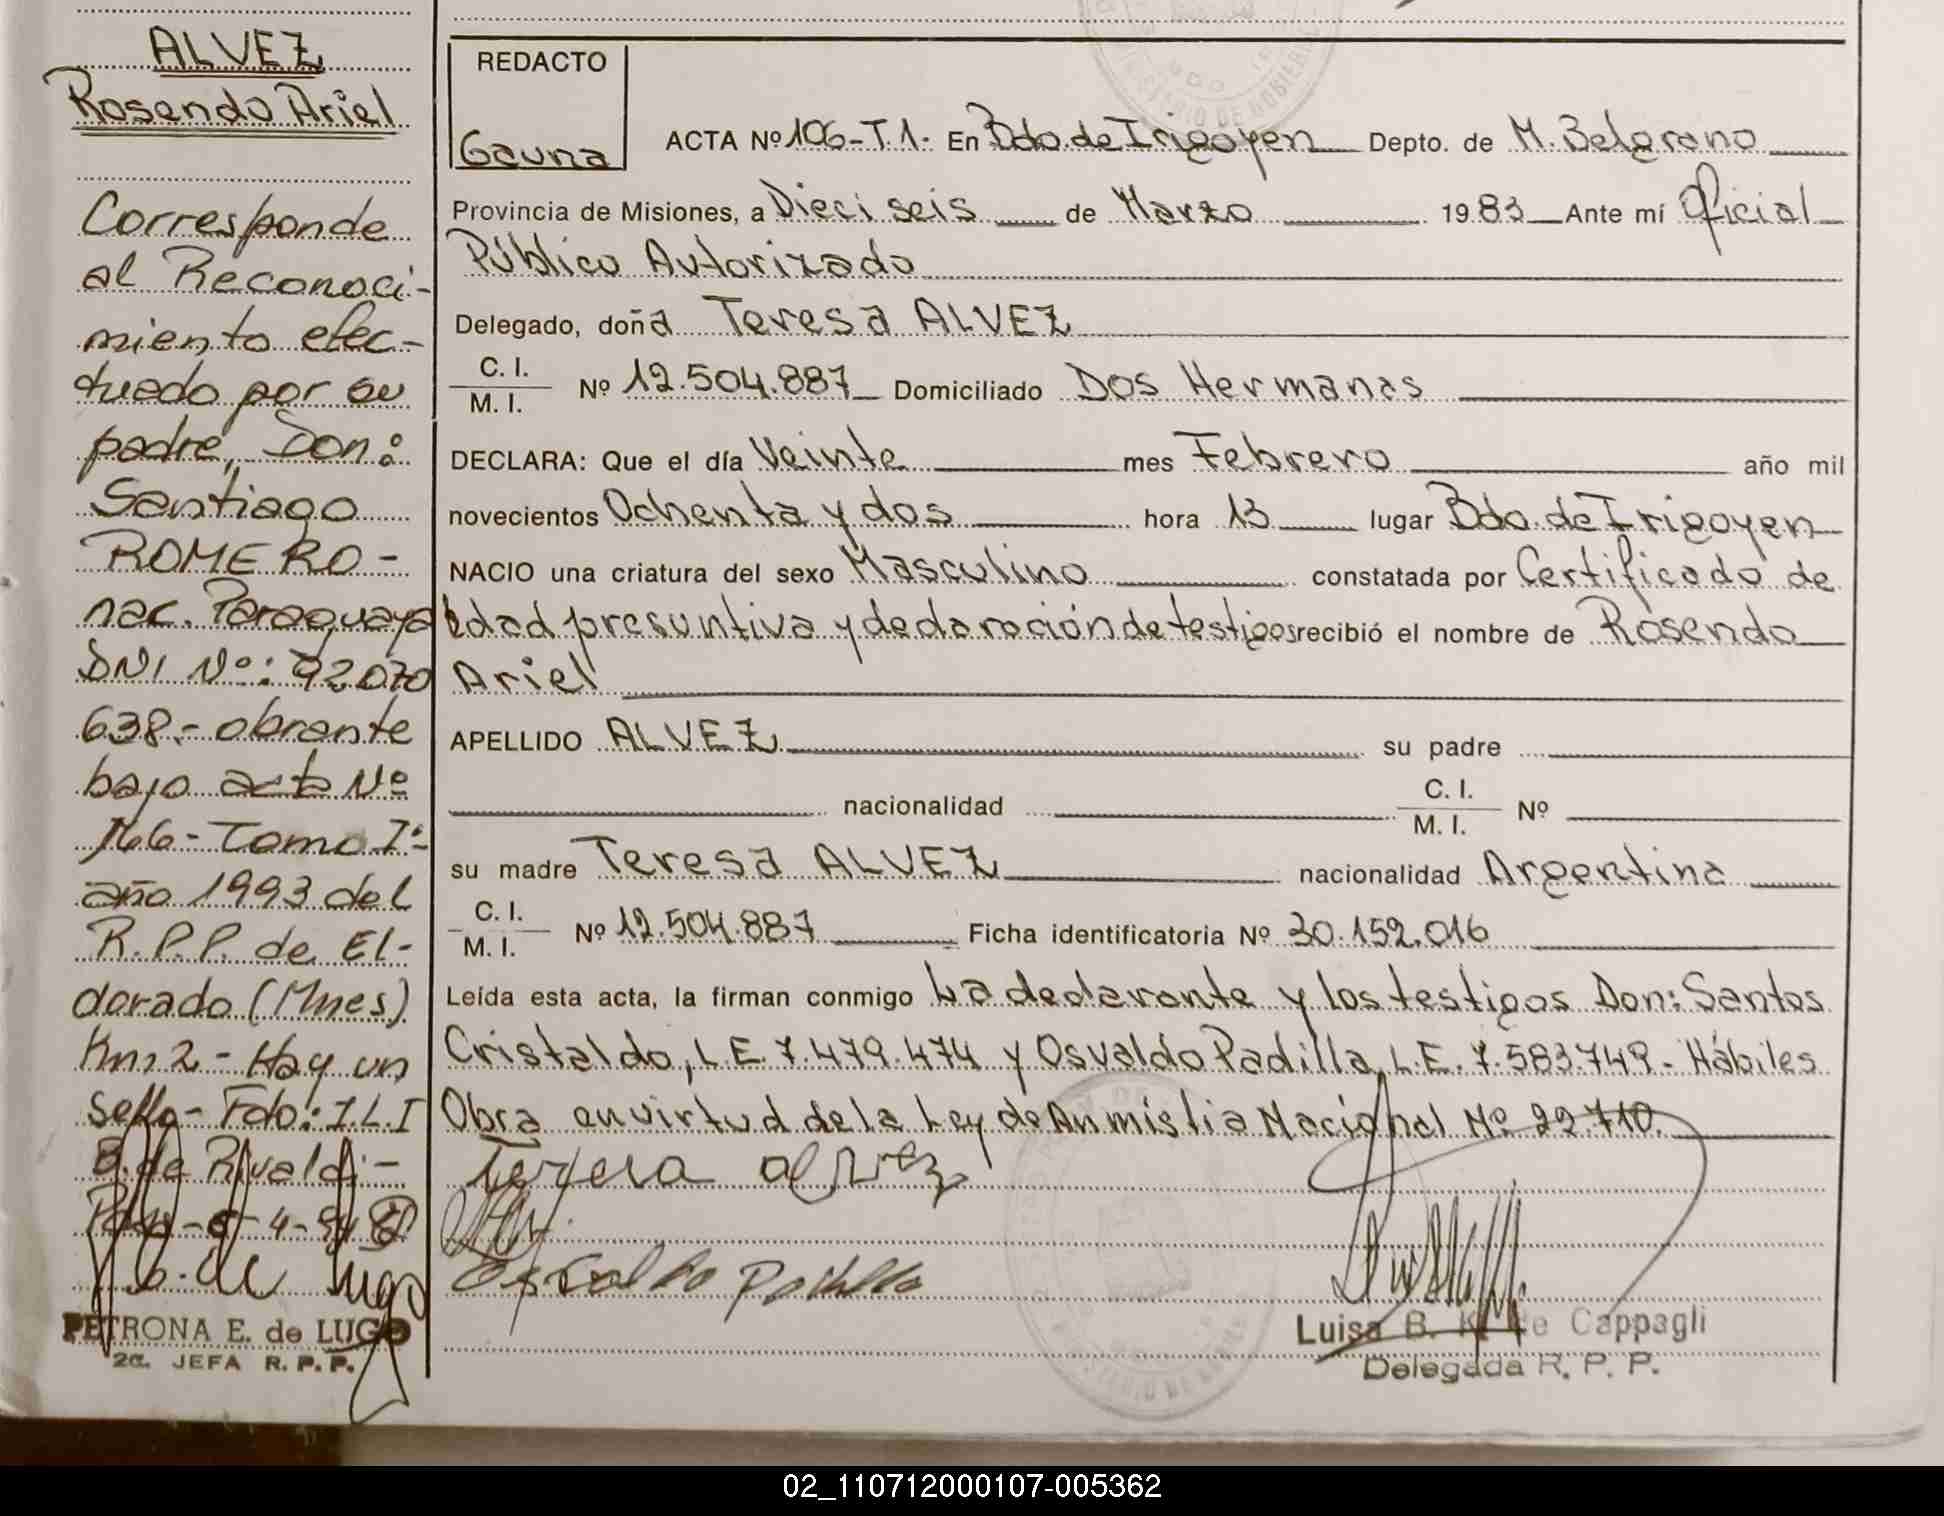 ALVEZ
Rosendo Ariel
Corresponde
al Reconoci-
miento efec-
tuado por su
padre, Don:
Santiago
ROMERO -
nac. Paraguaya
DNI Nº: 92.070
638.- obrante
bajo acta Nº
166 - Tomo Iº
año 1993 del
R.P.P. de El-
dorado (Mnes)
Km 2 - Hay un
sello - Fdo: I.L.I
B. de Rivaldi -
PETRONA E. de LUGO
2a. JEFA R. P. P.
REDACTO
Gauna
ACTA Nº 106-T.1. En Bdo. de Irigoyen Depto. de M. Belgrano
Provincia de Misiones, a Dieciseis de Marzo 1983 Ante mí Oficial
Público Autorizado
Delegado, doña Teresa ALVEZ
C. I.
M. I. Nº 12.504.887 Domiciliado Dos Hermanas
DECLARA: Que el día Veinte mes Febrero año mil
novecientos Ochenta y dos hora 13 lugar Bdo. de Irigoyen
NACIO una criatura del sexo Masculino constatada por Certificado de
Edad presuntiva y declaración de testigos recibió el nombre de Rosendo
Ariel
APELLIDO ALVEZ su padre
nacionalidad C. I.
M. I. Nº
su madre Teresa ALVEZ nacionalidad Argentina
C. I.
M. I. Nº 12.504.887 Ficha identificatoria Nº 30.152.016
Leída esta acta, la firman conmigo La declarante y los testigos Don: Santos
Cristaldo, L.E. 7.479.474 y Osvaldo Padilla, L.E. 7.583.749 - Hábiles
Obra en virtud de la Ley de Anmistia Nacional Nº 22.710.
Teresa alvez
Osvaldo Padilla
Luisa B. K. de Cappagli
Delegada R. P. P.
02_110712000107-005362